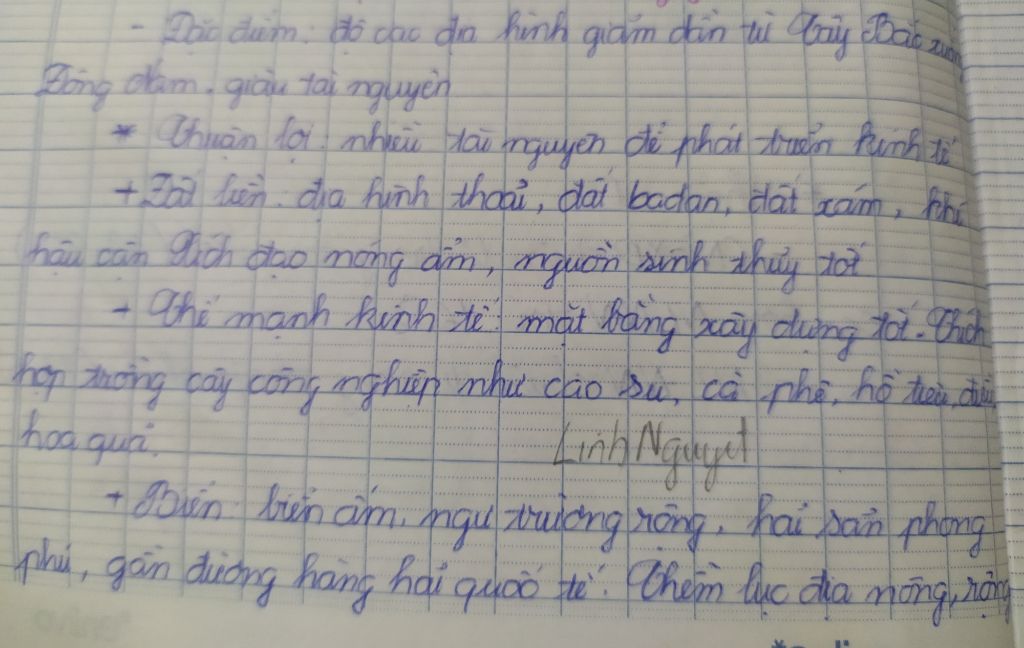 - Đặc điểm: độ cao địa hình giảm dần từ Tây Bắc xuống
Đông Nam. giàu tài nguyên
* Thuận lợi: nhiều tài nguyên để phát triển kinh tế
+ Đất liền: địa hình thoải, đất badan, đất xám, khí
hậu cận xích đạo nóng ẩm, nguồn sinh thủy tốt
+ Thế mạnh kinh tế: mặt bằng xây dựng tốt. Thích
hợp trồng cây công nghiệp như cao su, cà phê, hồ tiêu, điều
hoa quả.
Linh Nguyệt
+ Biển: biển ấm, ngư trường rộng, hải sản phong
phú, gần đường hàng hải quốc tế. Thềm lục địa nông, rộng